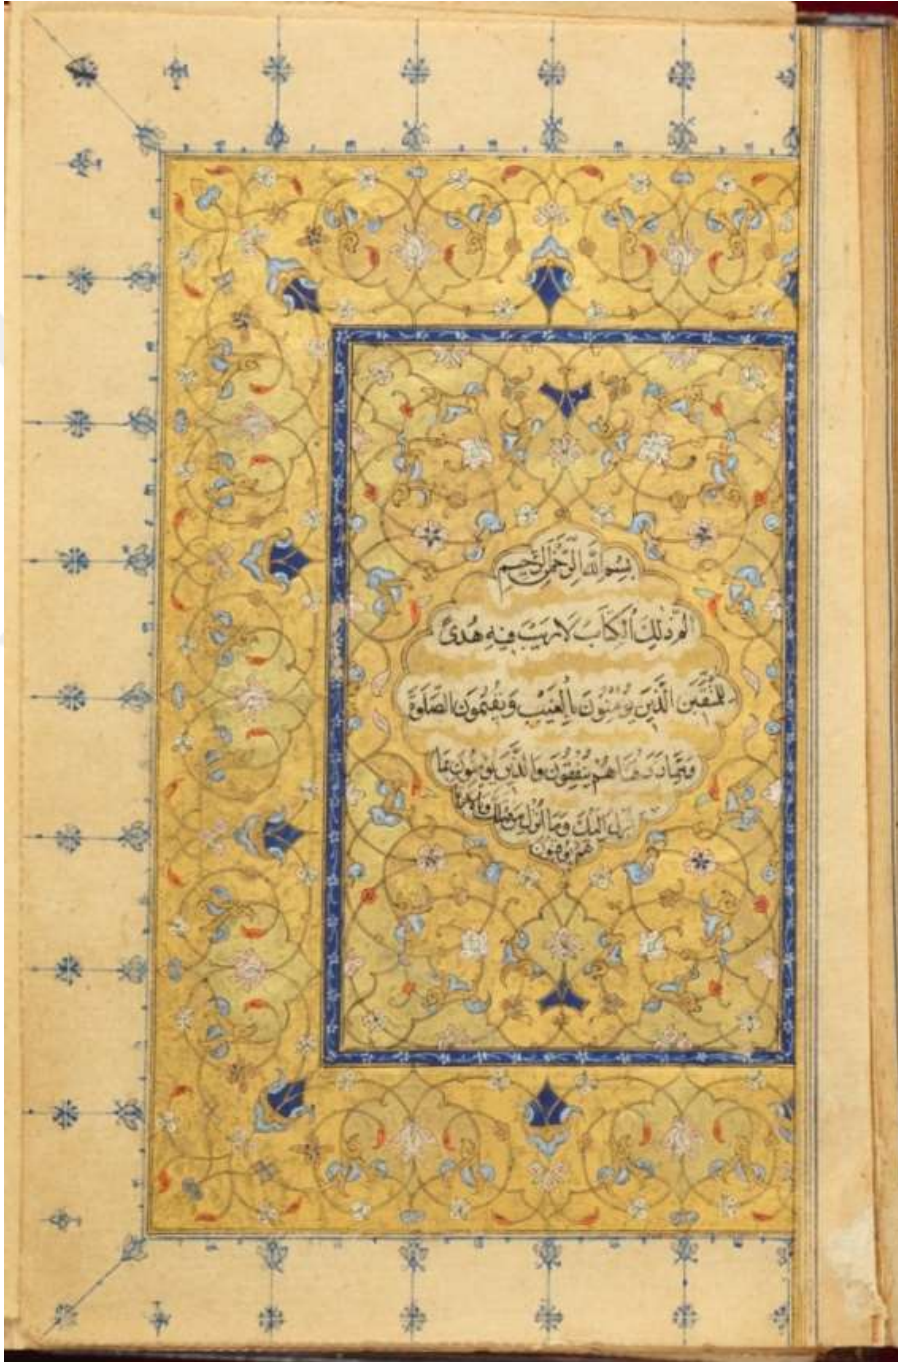 بِسْمِ اللَّهِ الرَّحْمَٰنِ الرَّحِيمِ
الم ذَٰلِكَ الْكِتَابُ لَا رَيْبَ فِيهِ هُدًى
لِلْمُتَّقِينَ الَّذِينَ يُؤْمِنُونَ بِالْغَيْبِ وَيُقِيمُونَ الصَّلَوٰةَ
وَمِمَّا رَزَقْنَاهُمْ يُنْفِقُونَ وَالَّذِينَ يُؤْمِنُونَ بِمَا
أُنْزِلَ إِلَيْكَ وَمَا أُنْزِلَ مِنْ قَبْلِكَ وَبِالْآخِرَةِ
هُمْ يُوقِنُونَ